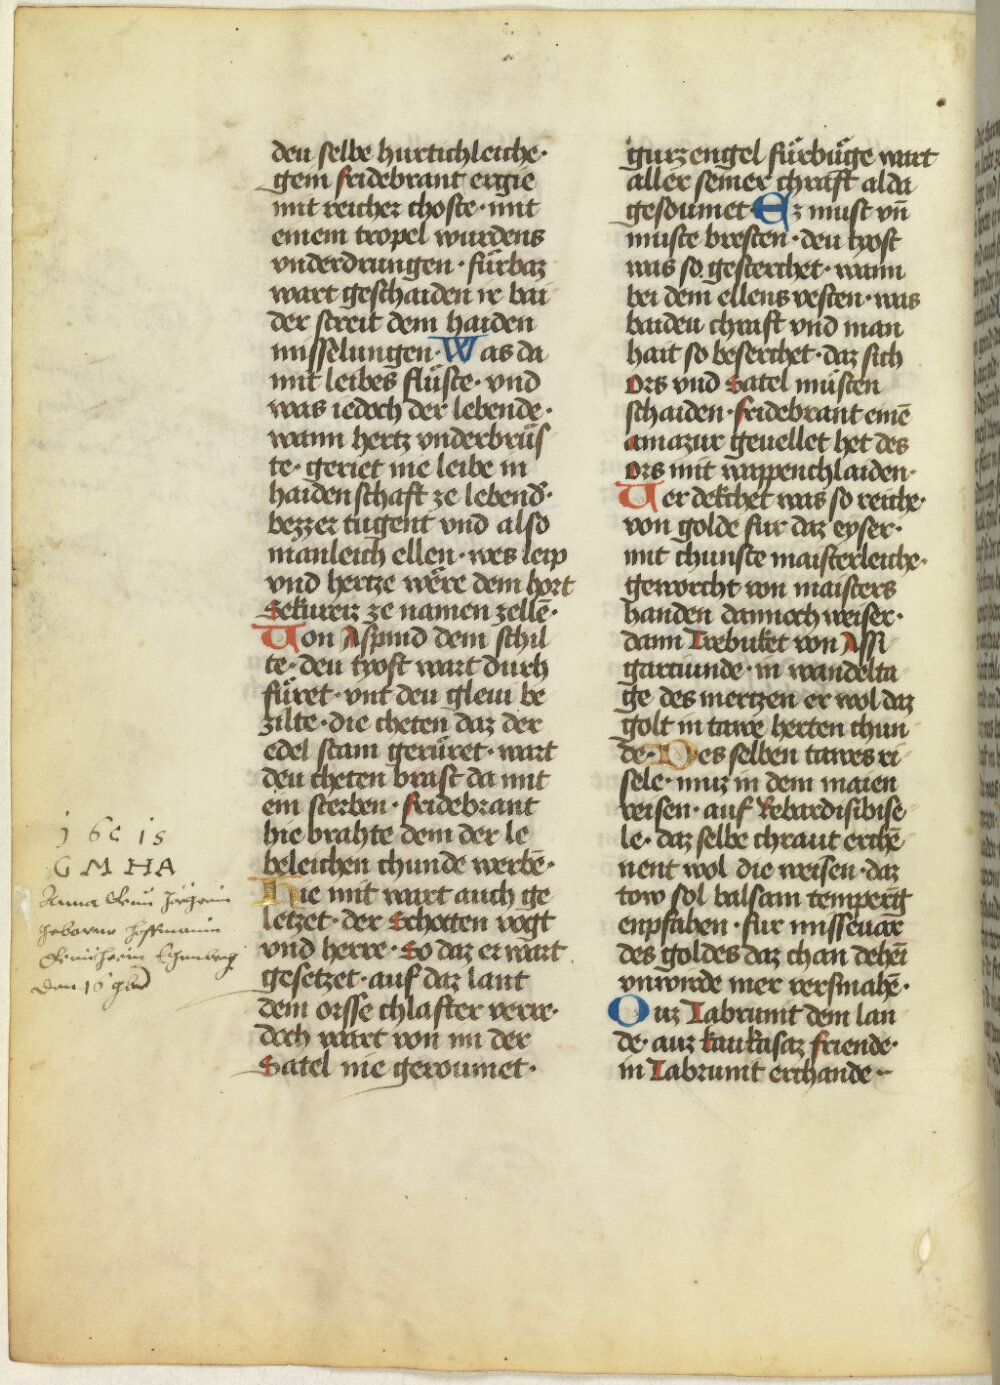 deu selbe hurtichleiche·
gein fridebrant ergie
mit reicher choste· mit
einem tropel wurdens
vnderdrungen· fürbaz
wart geschaiden ir bai
der streit dem haiden
misselungen· Was da
mit leibes flüste· vnd
was iedoch der lebende·
wann hertz vnderbrüs
te· geriet nie leibe in
haidenschaft ze lebend·
bezzer tugent vnd also
manleich ellen· wes leip
vnd hertze were dem hort
Sekureiz ze namen zellē·
Von Aspind dem schil
te· deu tyost wart durch
füret· vnt deu gleui be
zilte· die cheten daz der
edel stam gerüret· wart
deu cheten brast da mit
ein sterben· fridebrant
hie brahte dem der le
beleichen chunde werbē·
Hie mit wart auch ge
letzet· der Schotten vogt
vnd herre· So daz er wart
gesetzet· auf daz lant
dem orsse chlafter verre·
doch wart von im der
Satel nie geroumet·
gurz engel fürbüge wart
aller seiner chraft alda
gesoumet Ez must vn̄
muste bresten· deu tyost
was so gesterchet· wann
bei dem ellens vesten· was
baideu chraft vnd man
hait so beserchet· daz sich
Ors vnd Satel müsten
schaiden· fridebrant einē
amazur geuellet het des
Ors mit wappenchlaiden·
Verdekchet was so reiche·
von golde fur daz eyser·
mit chunste maisterleiche·
geworcht von maisters
handen dannoch weiser·
dann Trebuket von Assi
garciunde· in wandelta
ge des mertzen er wol daz
golt in tawe herten chun
de· Des selben tawes ri
sele· muz in dem maien
reisen· auf kebardisibise
le· daz selbe chraut erchē
nent wol die weisen· daz
tow sol balsam temperūg
enpfahen· fur misseuare
des goldes daz chan dehein
vnwirde mer versmahē·
Ouz Tabrunit dem lan
de· auz kaukasaz friende·
in Tabrunit erchande··
G M H A
geborne Hoffmanin